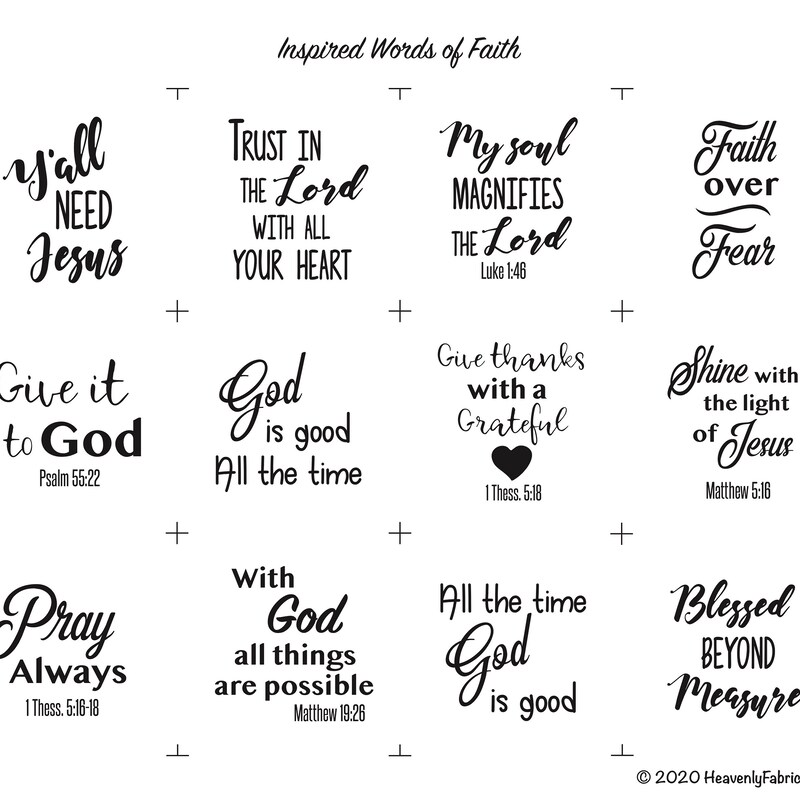 Inspired Words of Faith
Y'all
NEED
Jesus
TRUST IN
THE Lord
WITH ALL
YOUR HEART
My soul
MAGNIFIES
THE Lord
Luke 1:46
Faith
over
Fear
Give it
to God
Psalm 55:22
God
is good
All the time
Give thanks
with a
Grateful
1 Thess. 5:18
Shine with
the light
of Jesus
Matthew 5:16
Pray
Always
1 Thess. 5:16-18
With
God
all things
are possible
Matthew 19:26
All the time
God
is good
Blessed
BEYOND
Measure
© 2020 HeavenlyFabric